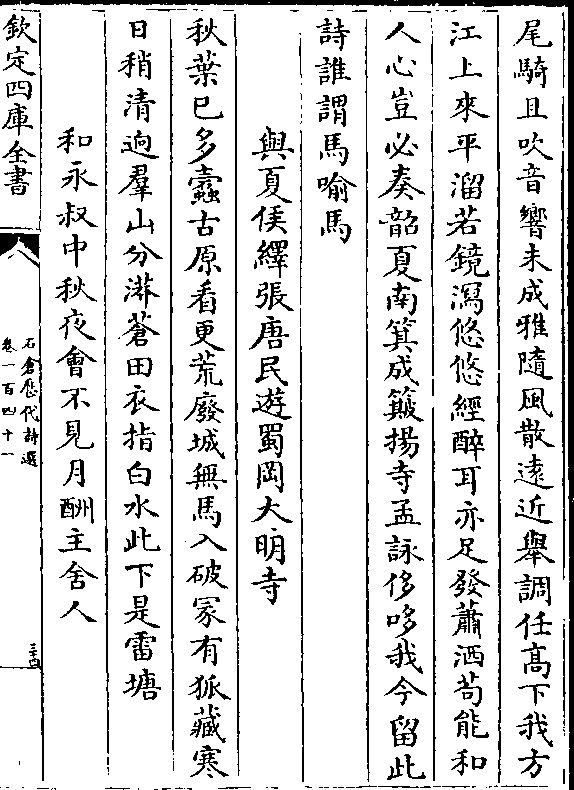 尾騎且吹音響未成雅隨風散遠近舉調任高下我方
江上來平溜若鏡瀉悠悠經醉耳亦足發蕭洒苟能和
人心豈必奏韶夏南箕成簸揚寺孟詠侈哆我今留此
詩誰謂馬喻馬
與夏侯繹張唐民遊蜀岡大明寺
秋葉已多蠧古原看更荒廢城無馬入破冢有狐藏寒
日稍清迥羣山分渺蒼田衣指白水此下是雷塘
和永叔中秋夜會不見月酬主舍人
欽定四庫全書
石倉歷代詩選
卷一百四十一